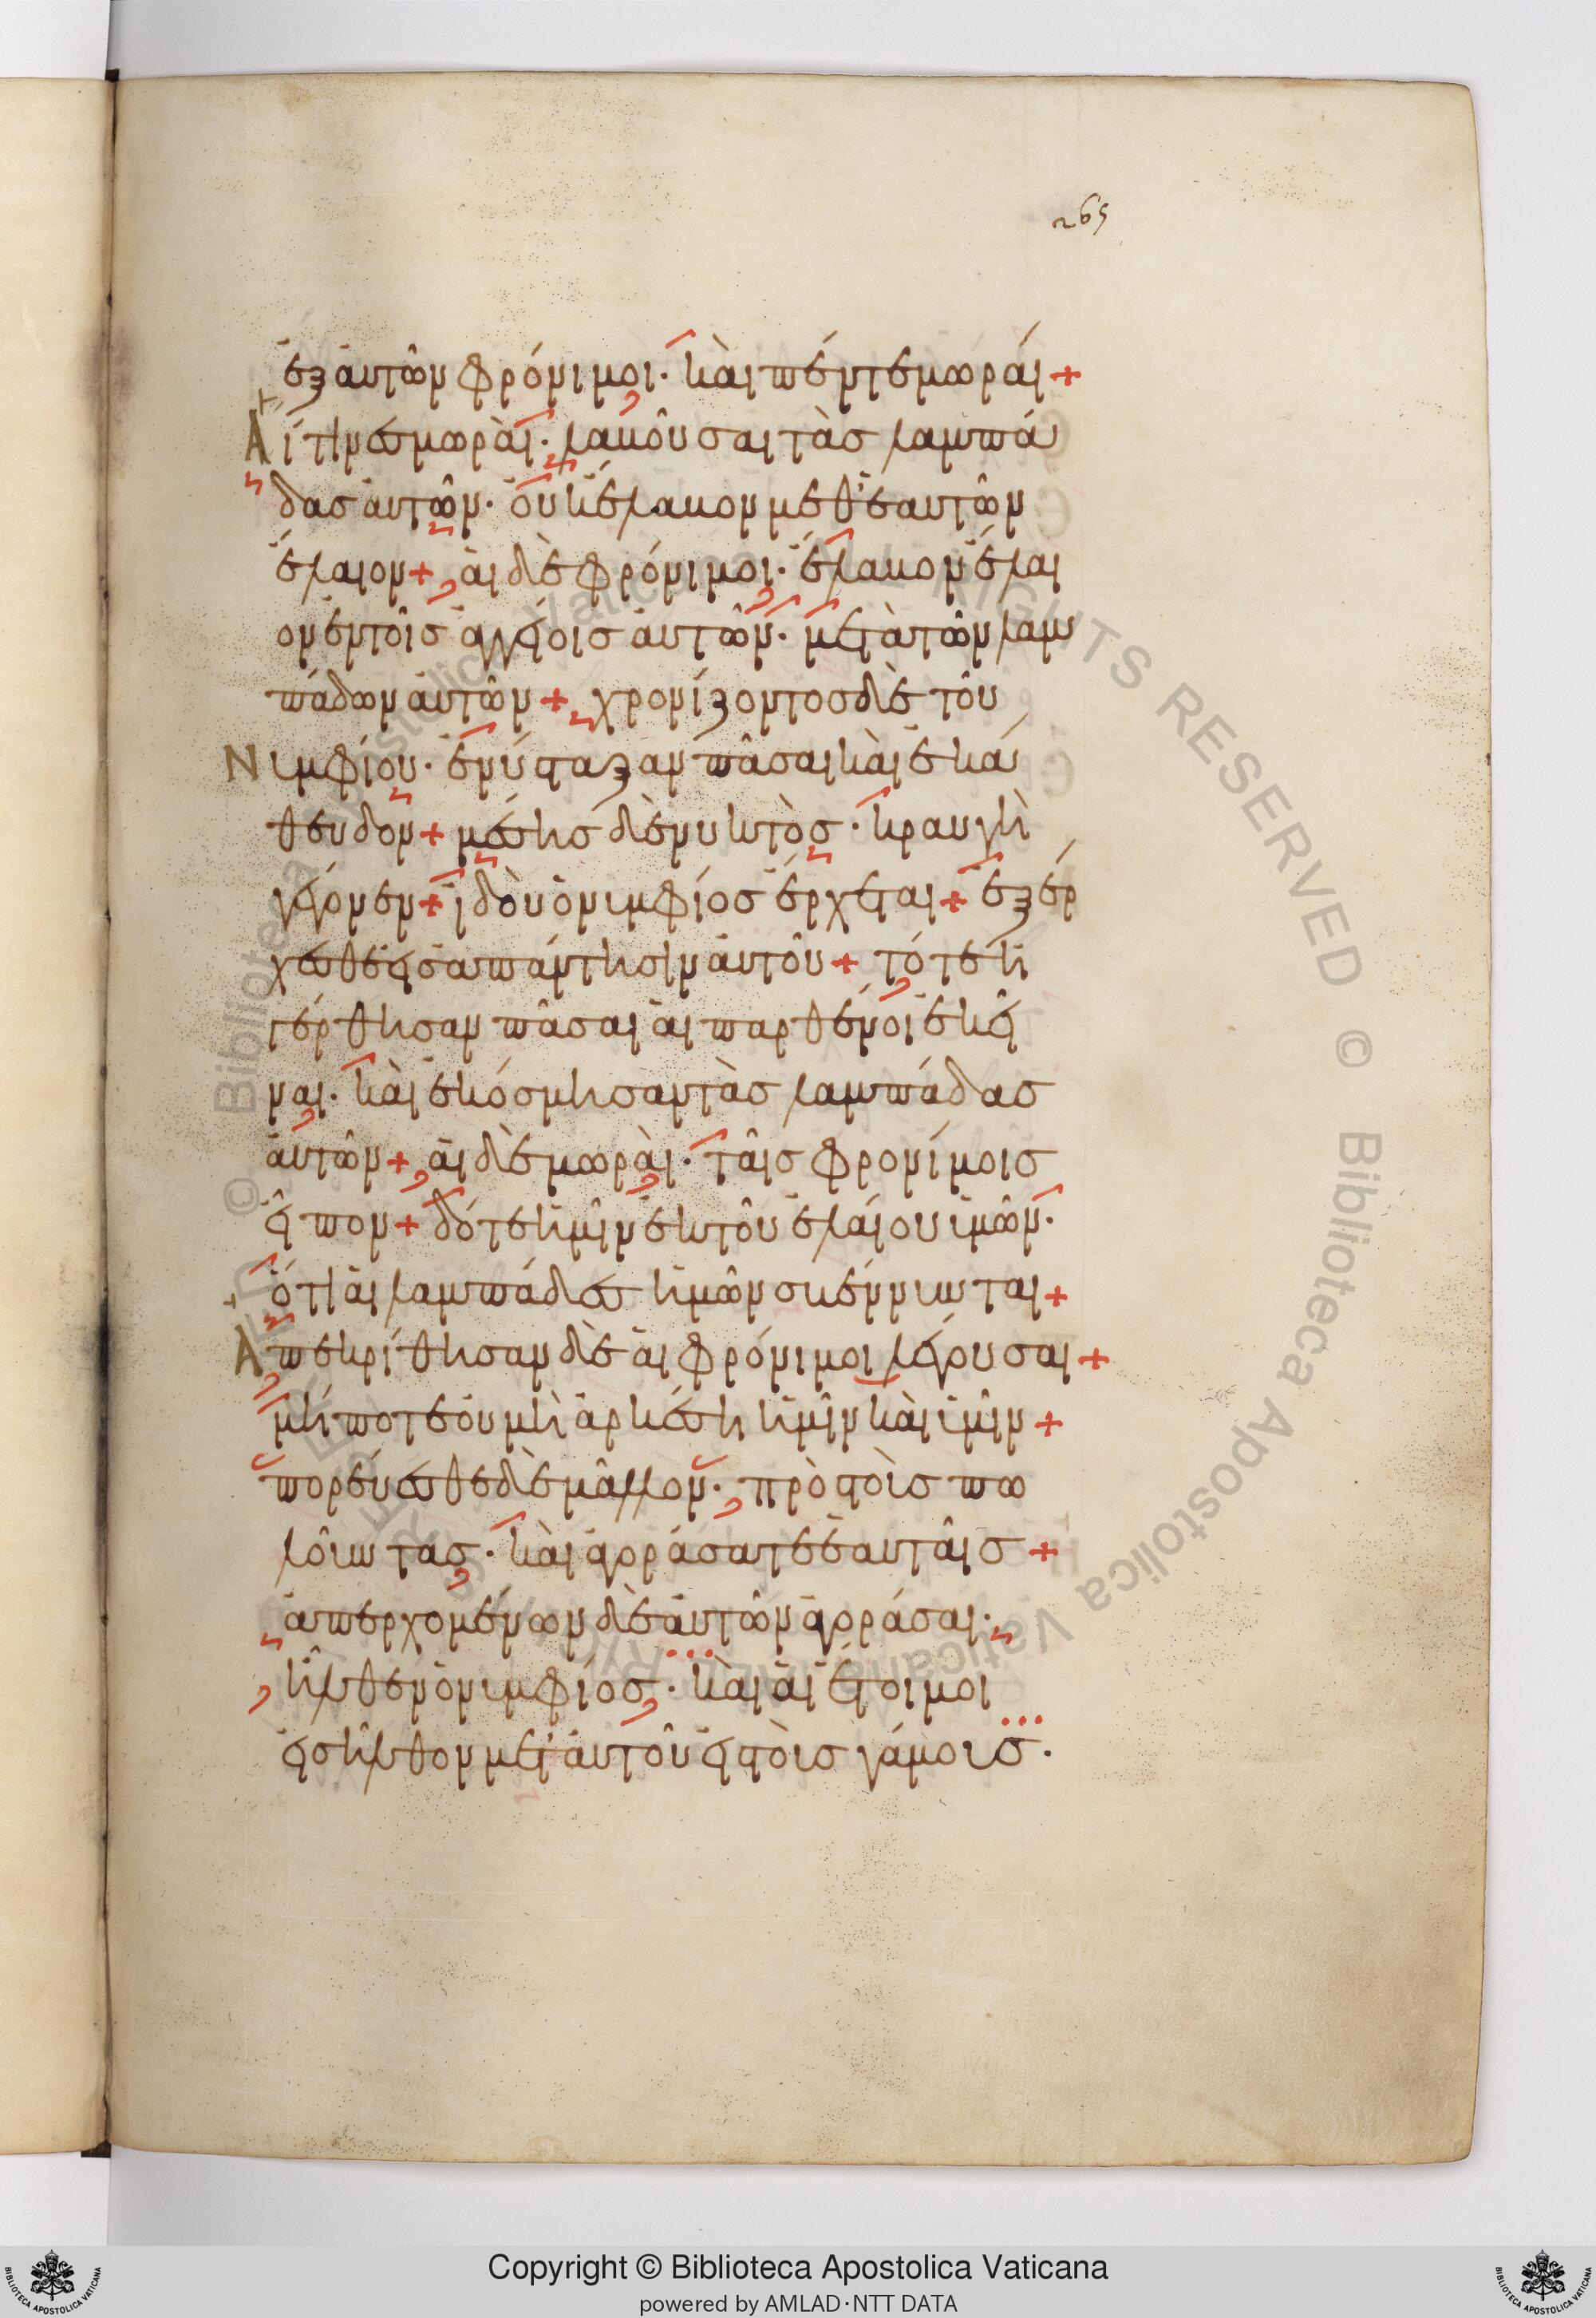 265
ἐξ ἀυτῶν φρόνιμοι· κὰι πέντε μωράι +
Αἵτινες μωρὰι· λακοῦσαι τὰσ λαμπά
δασ ἀυτῶν· ὀυκ ἔλακον μεθ' ἑαυτῶν
ἔλαιον + ἁι δὲ φρόνιμοι· ἔλακον ἔλαι
ον ἐν τοῖσ ἀγγείοισ ἀυτῶν· μετὰ τῶν λαμ
πάδων ἀυτῶν + χρονίζοντοσ δὲ τοῦ
Νιμφίου· ἐνύσταξαν πᾶσαι κὰι ἐκά
θευδον + μέσησ δὲ νυκτὸσ· κραυγὴ
γέγονεν + ἰδὸυ ὁ νιμφίοσ ἔρχεται + ἐξέρ
χεσθε εἰσ ἀπάντησιν ἀυτοῦ + τότε ἠ
γέρθησαν πᾶσαι ἁι παρθένοι ἐκεῖ
ναι· κὰι ἐκόσμησαν τὰσ λαμπάδασ
ἀυτῶν + ἁι δὲ μωρὰι· τᾶισ φρονίμοισ
εἶπον + δότε ἡμῖν ἐκ τοῦ ἐλάιου ιμῶν·
ὅτι ἁι λαμπάδεσ ἡμῶν σκέννινται +
Ἀπεκρίθησαν δὲ ἁι φρόνιμοι λέγουσαι +
μήποτε ὀυ μὴ ἀρκέση ἡμῖν κὰι ιμῖν +
πορεύεσθε δὲ μᾶλλον· πρὸσ τὸισ πω
λοῖντασ· κὰι ἀγοράσατε ἑαυτᾶισ +
ἀπερχομένων δὲ ἀυτῶν ἀγοράσαι·
ἦλθεν ὁ νιμφίοσ· κὰι ἁι ἕτοιμοι
εἰσῆλθον μετ' ἀυτοῦ εἰσ τὸισ γάμοισ·
© Biblioteca Apostolica Vaticana ALL RIGHTS RESERVED © Biblioteca Apostolica Vaticana ALL RIGHTS RESERVED
BIBLIOTECA APOSTOLICA VATICANA
Copyright © Biblioteca Apostolica Vaticana
powered by AMLAD·NTT DATA
BIBLIOTECA APOSTOLICA VATICANA